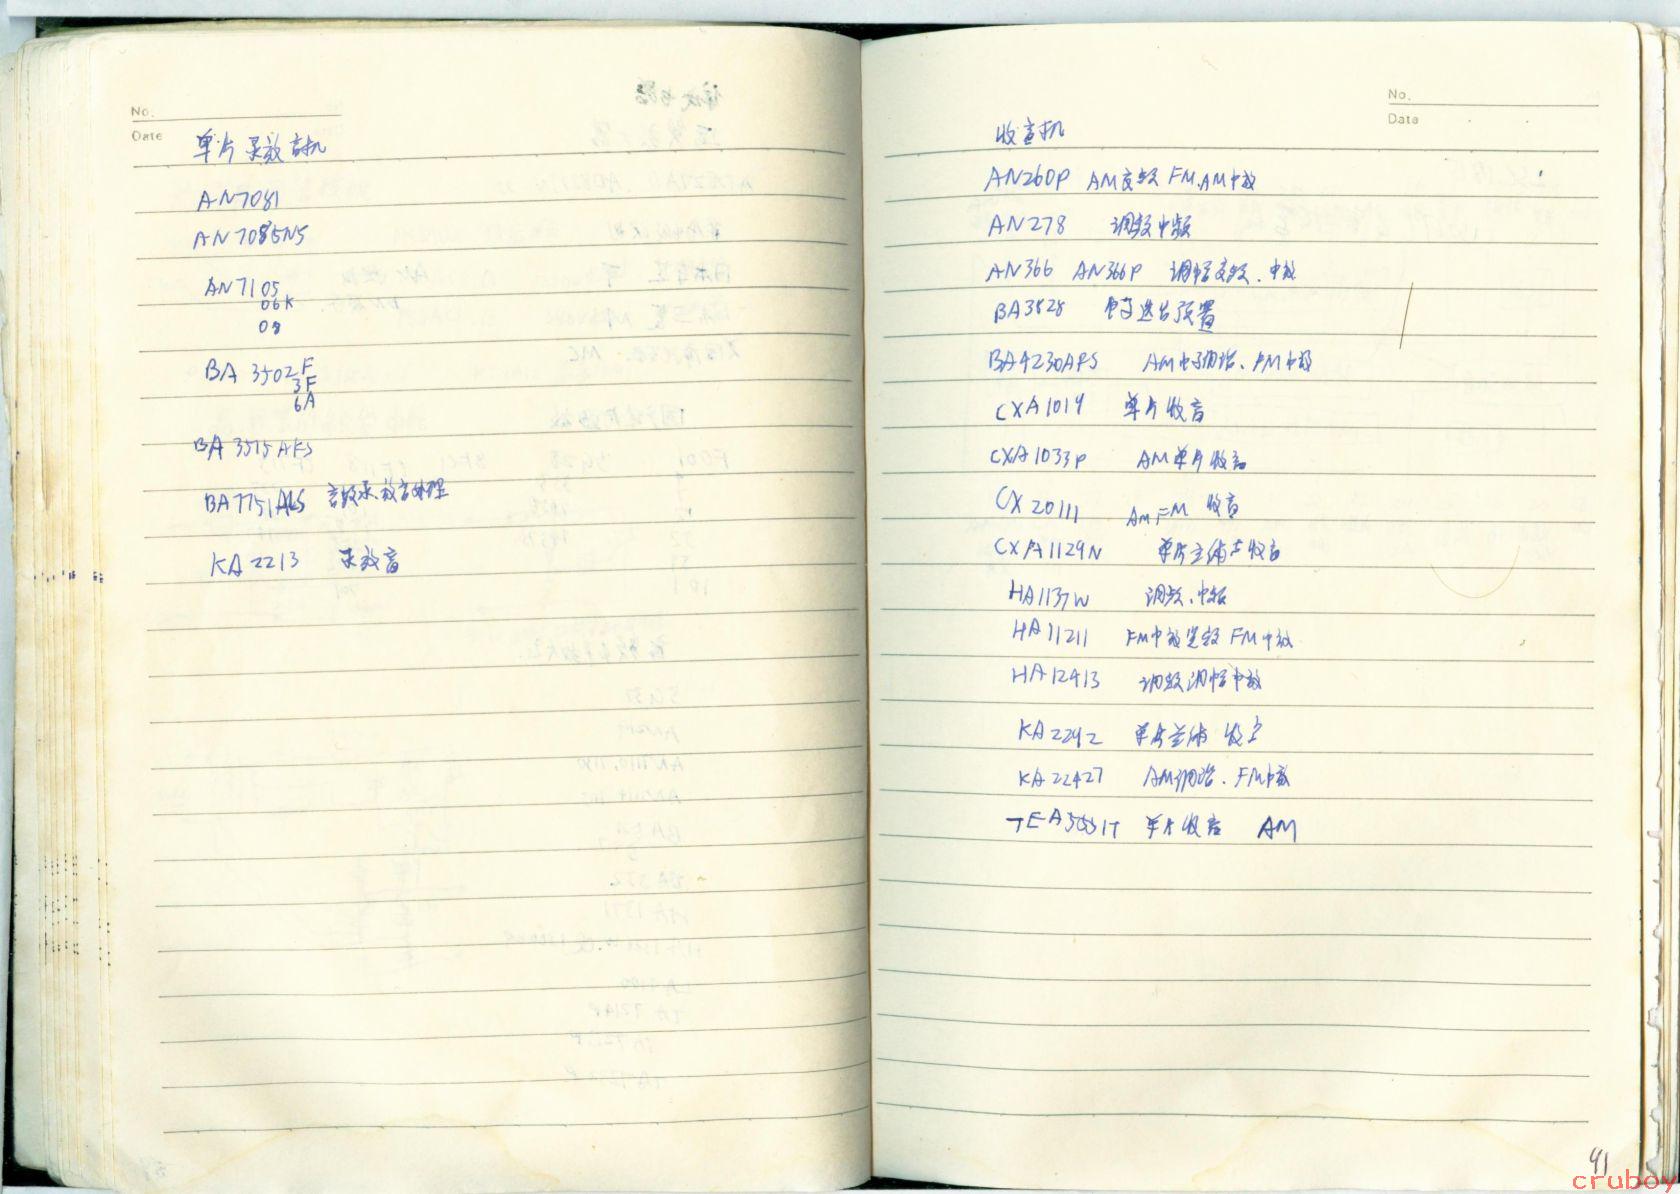 No.
Date
单片录放音机
AN7081
AN7085N5
AN7105
06K
08
BA 3502F
3F
6A
BA 3515AFS
BA7751ALS 音频录放音处理
KA2213 录放音
No.
Date
收音机
AN260P AM变频 FM.AM中放
AN278 调频中频
AN366 AN366P 调幅变频.中放
BA3828 电台选台预置
BA4230AFS AM电子调谐.FM中放
CXA1019 单片收音
CXA1033P AM单片收音
CX20111 AM FM 收音
CXA1129N 单片立体声收音
HA1137W 调频.中放
HA11211 FM中放变频 FM中放
HA12413 调频调幅中放
KA2292 单片立体 收音
KA22427 AM调谐.FM中放
TEA5551T 单片收音 AM
91
cruboy